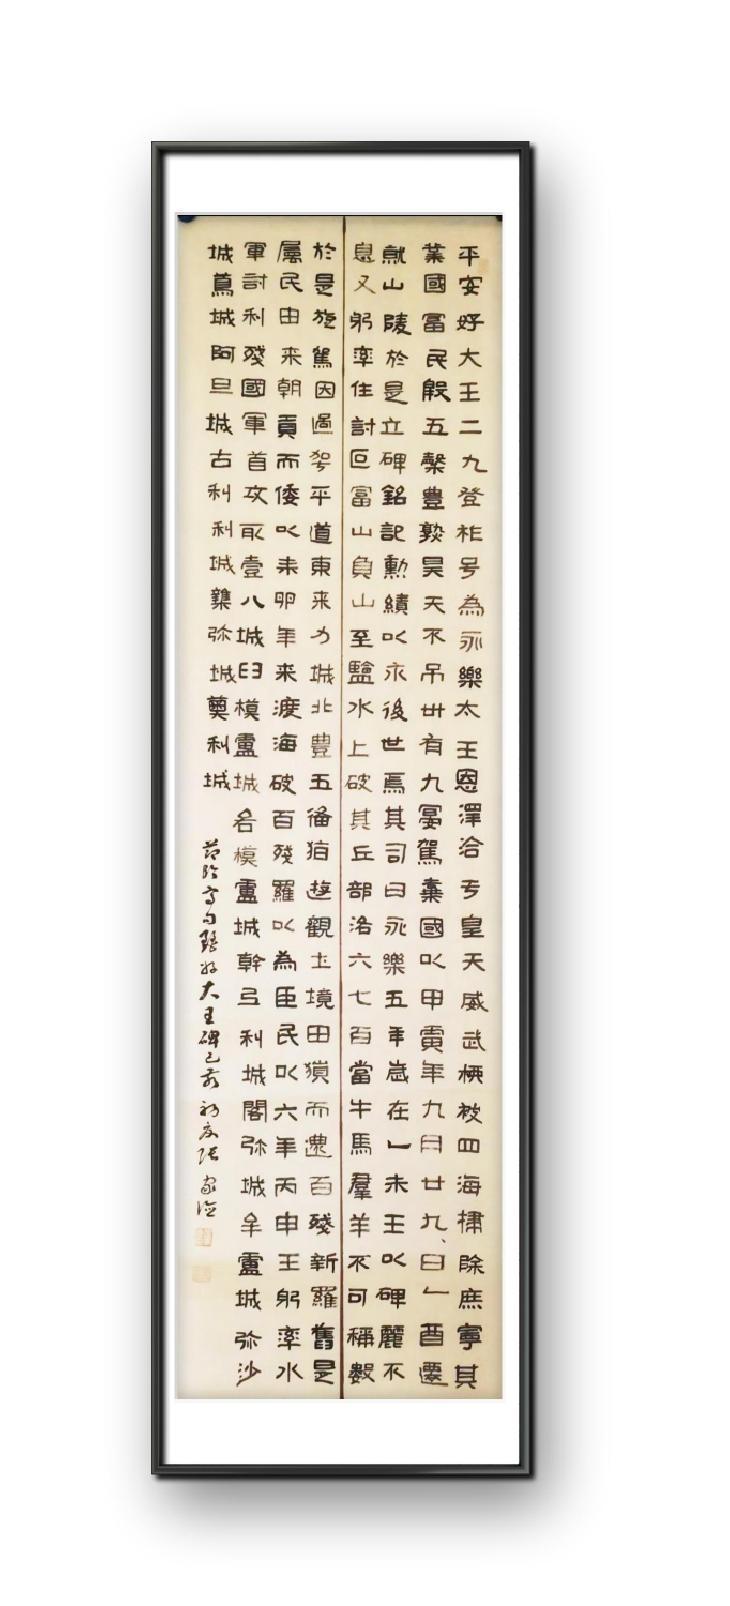 平安好大王二九登祚号為永樂太王恩澤洽亏皇天威武柳被四海掃除庶寧其
業國富民殷五穀豊熟昊天不吊卅有九晏駕棄國以甲寅年九月廿九日乙酉遷
就山陵於是立碑銘記勲績以永後世焉其司曰永樂五年歲在乙未王以碑麗不
息又躬率住討叵富山負山至鹽水上破其丘部洛六七百當牛馬羣羊不可稱數
於是旋駕因過平道東来力城北豊五備猶遊觀土境田獵而還百殘新羅舊是
屬民由来朝貢而倭以来卯年来渡海破百殘羅以為臣民以六年丙申王躬率水
軍討利殘國軍首攻取壹八城臼模盧城各模盧城幹弖利城閣弥城牟盧城弥沙
城蔦城阿旦城古利利城弥城奠利城
大王碑己 张家